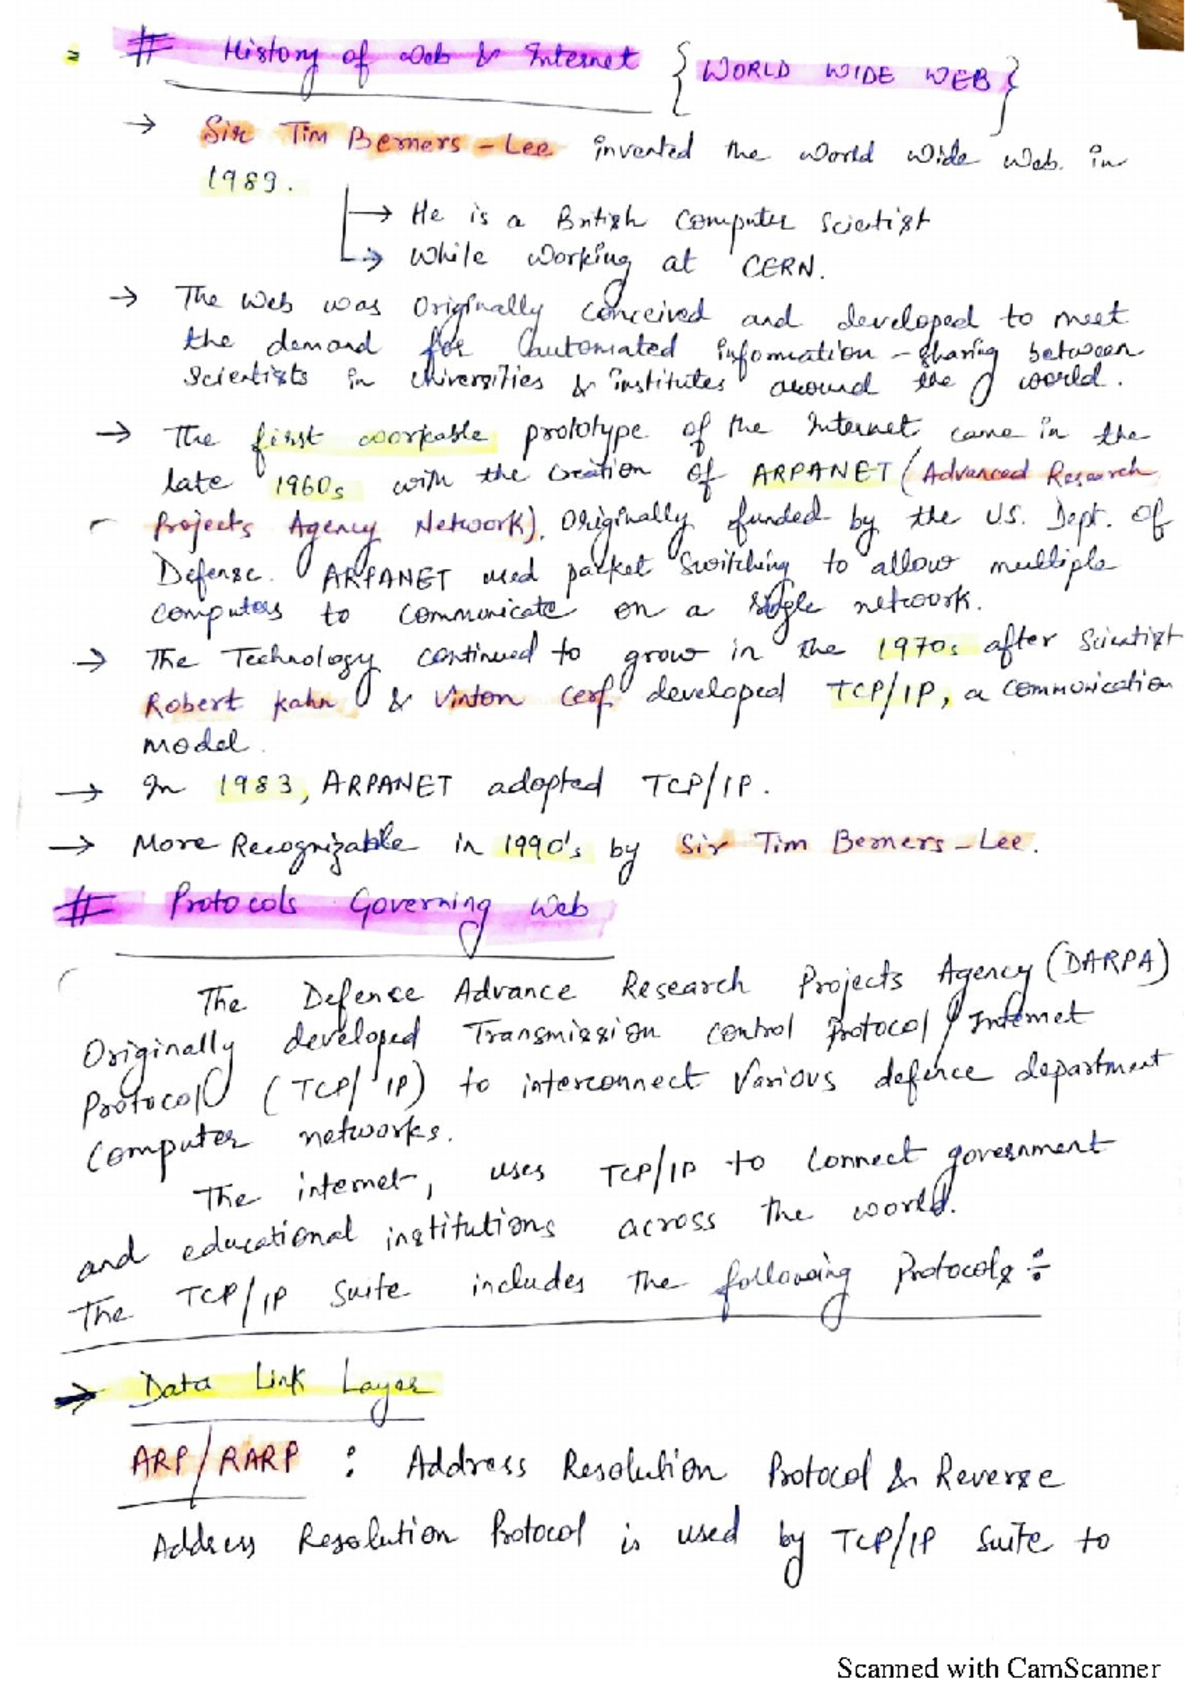 # History of Web & Internet {WORLD WIDE WEB}
→ Sir Tim Berners-Lee invented the world wide web. in
1989.
→ He is a British Computer Scientist
→ While working at CERN.
→ The Web was Originally conceived and developed to meet
the demand for automated information-sharing between
Scientists in universities & institutes around the world.
→ The first workable prototype of the Internet came in the
late 1960s with the creation of ARPANET (Advanced Research
Projects Agency Network). Originally funded by the U.S. Dept. Of
Defense. ARPANET used packet switching to allow multiple
computers to communicate on a single network.
→ The Technology continued to grow in the 1970s after Scientist
Robert Kahn & Vinton Cerf developed TCP/IP, a communication
model.
→ In 1983, ARPANET adopted TCP/IP.
→ More Recognizable in 1990's by Sir Tim Berners-Lee.
# Protocols Governing Web
The Defence Advance Research Projects Agency (DARPA)
Originally developed Transmission control Protocol / Internet
Protocol (TCP/IP) to interconnect Various defence department
Computer networks.
The internet, uses TCP/IP to connect government
and educational institutions across the world.
The TCP/IP Suite includes the following Protocols ÷
→ Data Link Layer
ARP/RARP : Address Resolution Protocol & Reverse
Address Resolution Protocol is used by TCP/IP Suite to
Scanned with CamScanner